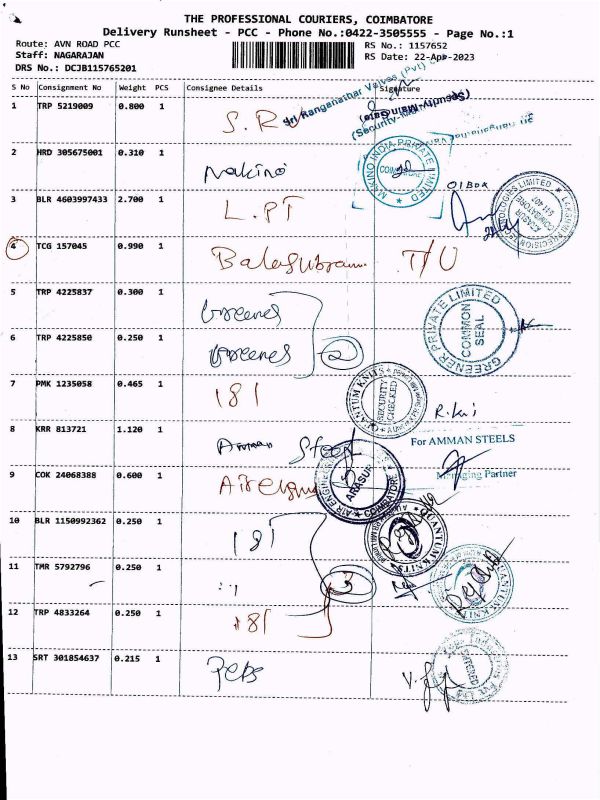 THE PROFESSIONAL COURIERS, COIMBATORE
Delivery Runsheet - PCC - Phone No.:0422-3505555 - Page No.:1
Route: AVN ROAD PCC
Staff: NAGARAJAN
DRS No.: DCJB115765201
RS No.: 1157652
RS Date: 22-Apr-2023
S No Consignment No Weight PCS Consignee Details Signature
1 TRP 5219009 0.800 1
Sri Ranganathar Valves (Pvt)
(Security-Main Gate)
2 HRD 305675001 0.310 1 Makino
MAKINO INDIA PRIVATE LIMITED
COIMBATORE
3 BLR 4603997433 2.700 1 L.PT
TECHNOLOGIES LIMITED
LAKSHMI PRECISION
ARASUR
COIMBATORE
641 407
4 TCG 157045 0.990 1 T/U
5 TRP 4225837 0.300 1 Greenes
6 TRP 4225850 0.250 1 Greenes 2
GREENER PRIVATE LIMITED
COMMON
SEAL
7 PMK 1235058 0.465 1 181
QUANTUM KNITS
SECURITY
CHECKED
R.Ki
8 KRR 813721 1.120 1 Amman Steel
For AMMAN STEELS
Managing Partner
9 COK 24068388 0.600 1
AIR
ARASUR
COIMBATORE
10 BLR 1150992362 0.250 1 181
QUANTUM KNITS
11 TMR 5792796 0.250 1 : 1 3
QUANTUM KNITS
12 TRP 4833264 0.250 1 181
13 SRT 301854637 0.215 1 Peps